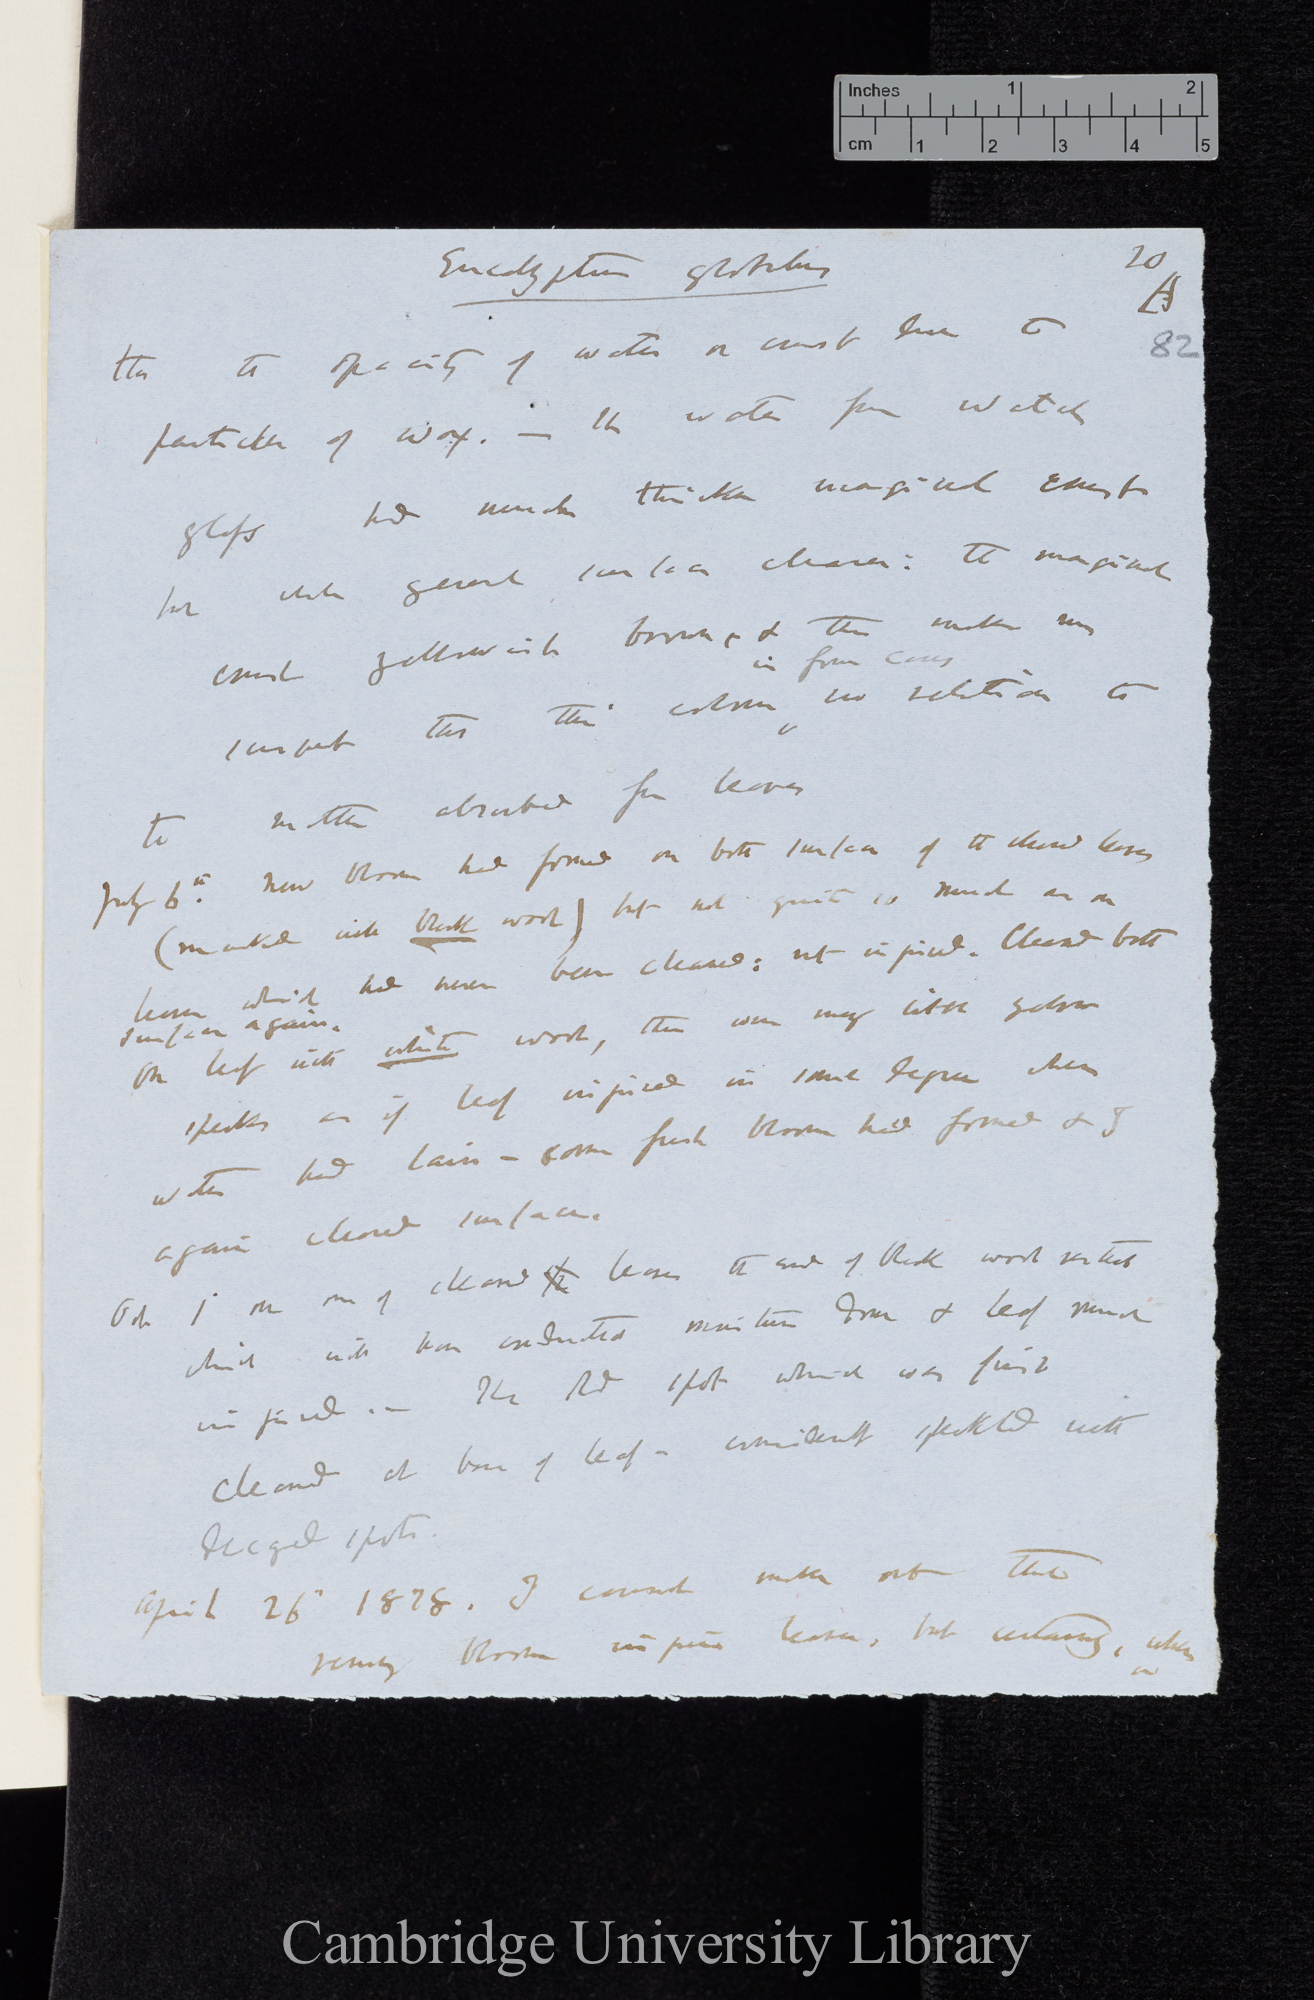 Inches 1 2
cm 1 2 3 4 5
Eucalyptus globulus
20
A
82
the opacity of water or crust due to
particles of wax. — The water from watch
glass had much thicker marginal crust
but whole general surface cleaner: the marginal
crust yellowish brown, & this makes me
in some cases
suspect that this colour no relation to
to matter absorbed from leaves
July 6th. New bloom had formed on both surfaces of the cleaned leaves
(marked with black wool) but not quite so much as on
leaves which had never been cleaned: not injured. Cleaned both
surfaces again.
On leaf with white wool, there were many little yellow
specks as if leaf injured in some degree where
water had lain — some fresh bloom had formed & I
again cleaned surface.
Oct 1 on one of cleaned the leaves the end of black wool
which will have conducted moisture down & leaf much
injured. — The old spot which was first
cleaned at base of leaf — speckled with
decayed spots.
April 26th 1878. I cannot make out that
removing bloom injures leaves, but certainly, when
Cambridge University Library